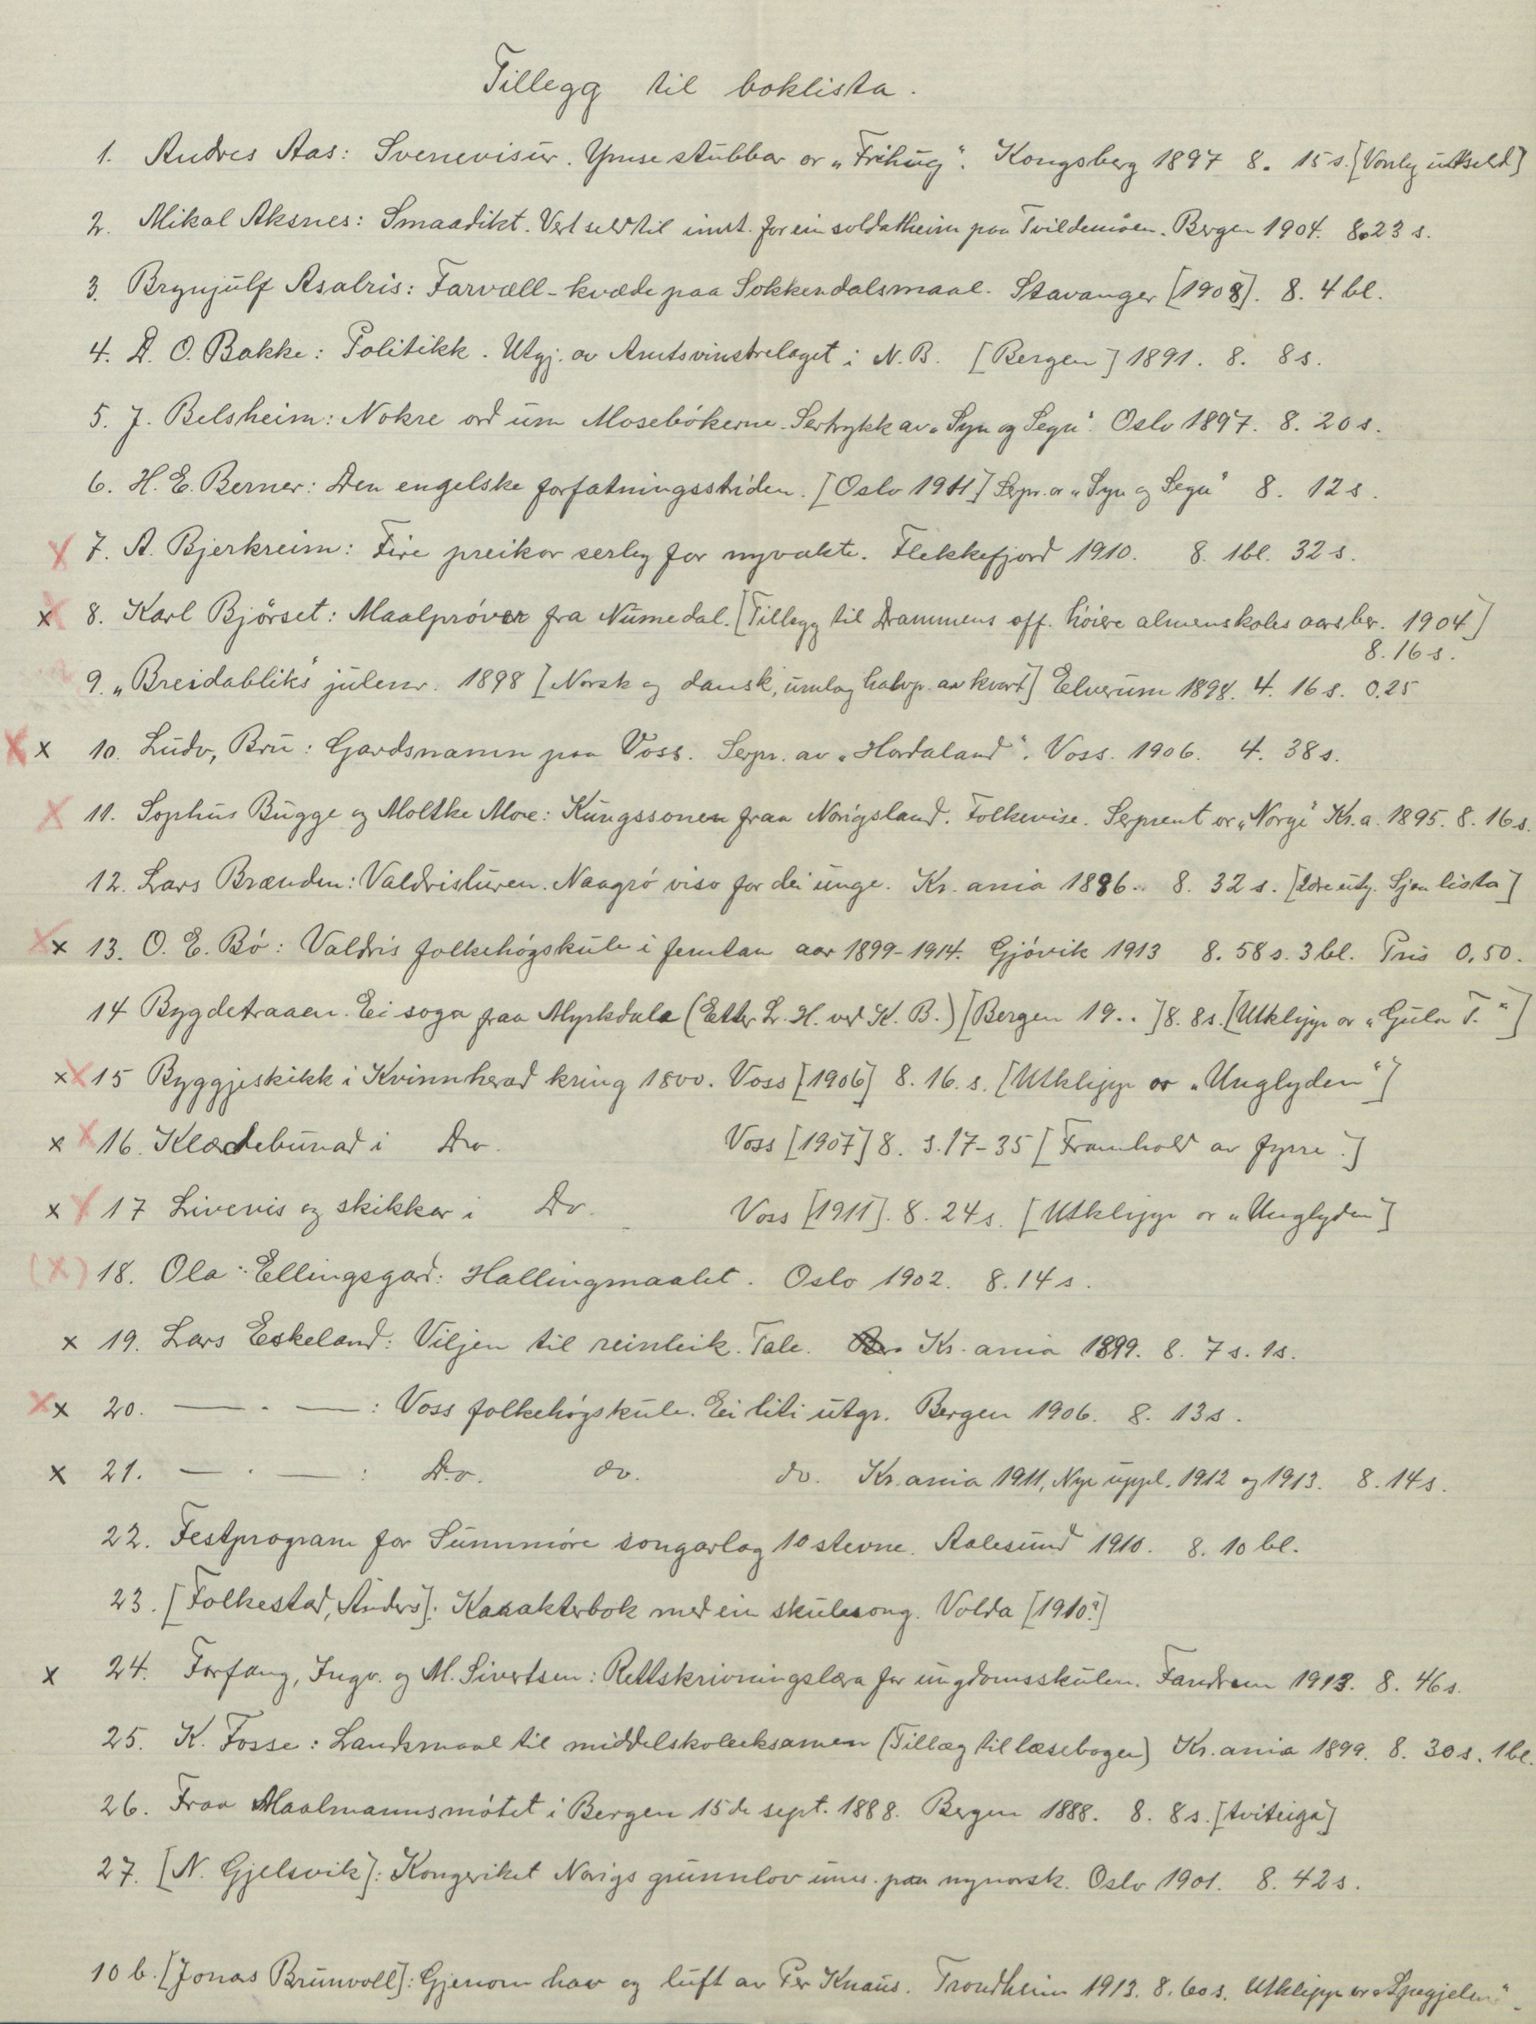 Tillegg til boklista.
1. Andres Aas: Svenevisur. Ymse stubbar or „Frihug“. Kongsberg 1897 8. 15 s. [Vonleg utseld]
2. Mikal Aksnes: Smaadikt. Vert seld til innt. for ein soldatheim paa Tvildemoen. Bergen 1904. 8. 23 s.
3. Brynjulf Asalris: Farvæll-kvæde paa Sokkendalsmaal. Stavanger [1908]. 8. 4 bl.
4. D. O. Bakke: Politikk. Utgj. av Amtsvinstrelaget i N. B. [Bergen] 1891. 8. 8 s.
5. J. Belsheim: Nokre ord um Mosebökerne. Sertrykk av „Syn og Segn“. Oslo 1897. 8. 20 s.
6. H. E. Berner: Den engelske forfatningsstriden. [Oslo 1911] Serpr. or „Syn og Segn“ 8. 12 s.
x 7. A. Bjerkreim: Fire preikor serleg for nyvakte. Flekkefjord 1910. 8. 1 bl. 32 s.
x x 8. Karl Björset: Maalpróver fra Numedal. [Tillegg til Drammens off. höiere almenskoles aarsber. 1904]
8. 16 s.
9. „Breidabliks“ julenr. 1898 [Norsk og dansk, umlag halvp. av kvart] Elverum 1898. 4. 16 s. 0.25
x x 10. Ludv, Bru: Gardsnamn paa Voss. Serpr. av „Hordaland“. Voss. 1906. 4. 38 s.
x 11. Sophus Bugge og Moltke Moe: Kungssonen fraa Norigsland. Folkevise. Serprent or „Norge“ Kr.a. 1895. 8. 16 s.
12. Lars Brænden: Valdrisluren. Naagró viso for dei unge. Kr. ania 1886. 8. 32 s. [2dre utg. Sjaa lista]
x x 13. O. E. Bó: Valdris folkehógskule i femtan aar 1899-1914. Gjóvik 1913 8. 58 s. 3 bl. Pris 0,50.
14 Bygdetraaen. Ei soga fraa Myrkdala (Etter L. H. ved K. B.) [Bergen 19..] 8. 8 s. [Utklipp or „Gula T.“]
x x 15 Byggjeskikk i Kvinnherad kring 1800. Voss [1906] 8. 16. s. [Utklipp or „Unglyden“]
x x 16. Klædebunad i Do. Voss [1907] 8. s. 17-35 [Framhald av fyrre.]
x x 17 Livevis og skikkar i Do. Voss [1911]. 8. 24 s. [Utklipp or „Unglyden]
(x) 18. Ola Ellingsgard: Hallingmaalet. Oslo 1902. 8. 14 s.
x 19. Lars Eskeland: Viljen til reinleik. Tale. Kr. ania 1899. 8. 7 s. 1 s.
x x 20. — . — : Voss folkehógskule. Ei liti utgr. Bergen 1906. 8. 13 s.
x 21. — . — : Do. do. do. Kr.ania 1911, Nye uppl. 1912 og 1913. 8. 14 s.
22. Festprogram for Sunnmöre songarlag 10 stevne. Aalesund 1910. 8. 10 bl.
23. [Folkestad, Anders]: Karakterbok med ein skulesong. Volda [1910?]
x 24. Forfang, Ingv. og M. Sivertsen: Rettskrivningslæra for ungdomsskulen. Trondheim 1913. 8. 46 s.
25. K. Fosse: Landsmaal til middelskoleeksamen (Tillæg til læsebogen) Kr.ania 1899. 8. 30 s. 1 bl.
26. Fraa Maalmannsmótet i Bergen 15de sept. 1888. Bergen 1888. 8. 8 s. [tviteiga]
27. [N. Gjelsvik]: Kongeriket Norigs grunnlov ums. paa nynorsk. Oslo 1901. 8. 42 s.
10 b. [Jonas Brunvoll]: Gjenom hav og luft av Per Knaus. Trondheim 1913. 8. 60 s. Utklipp or „Spegjelen“.